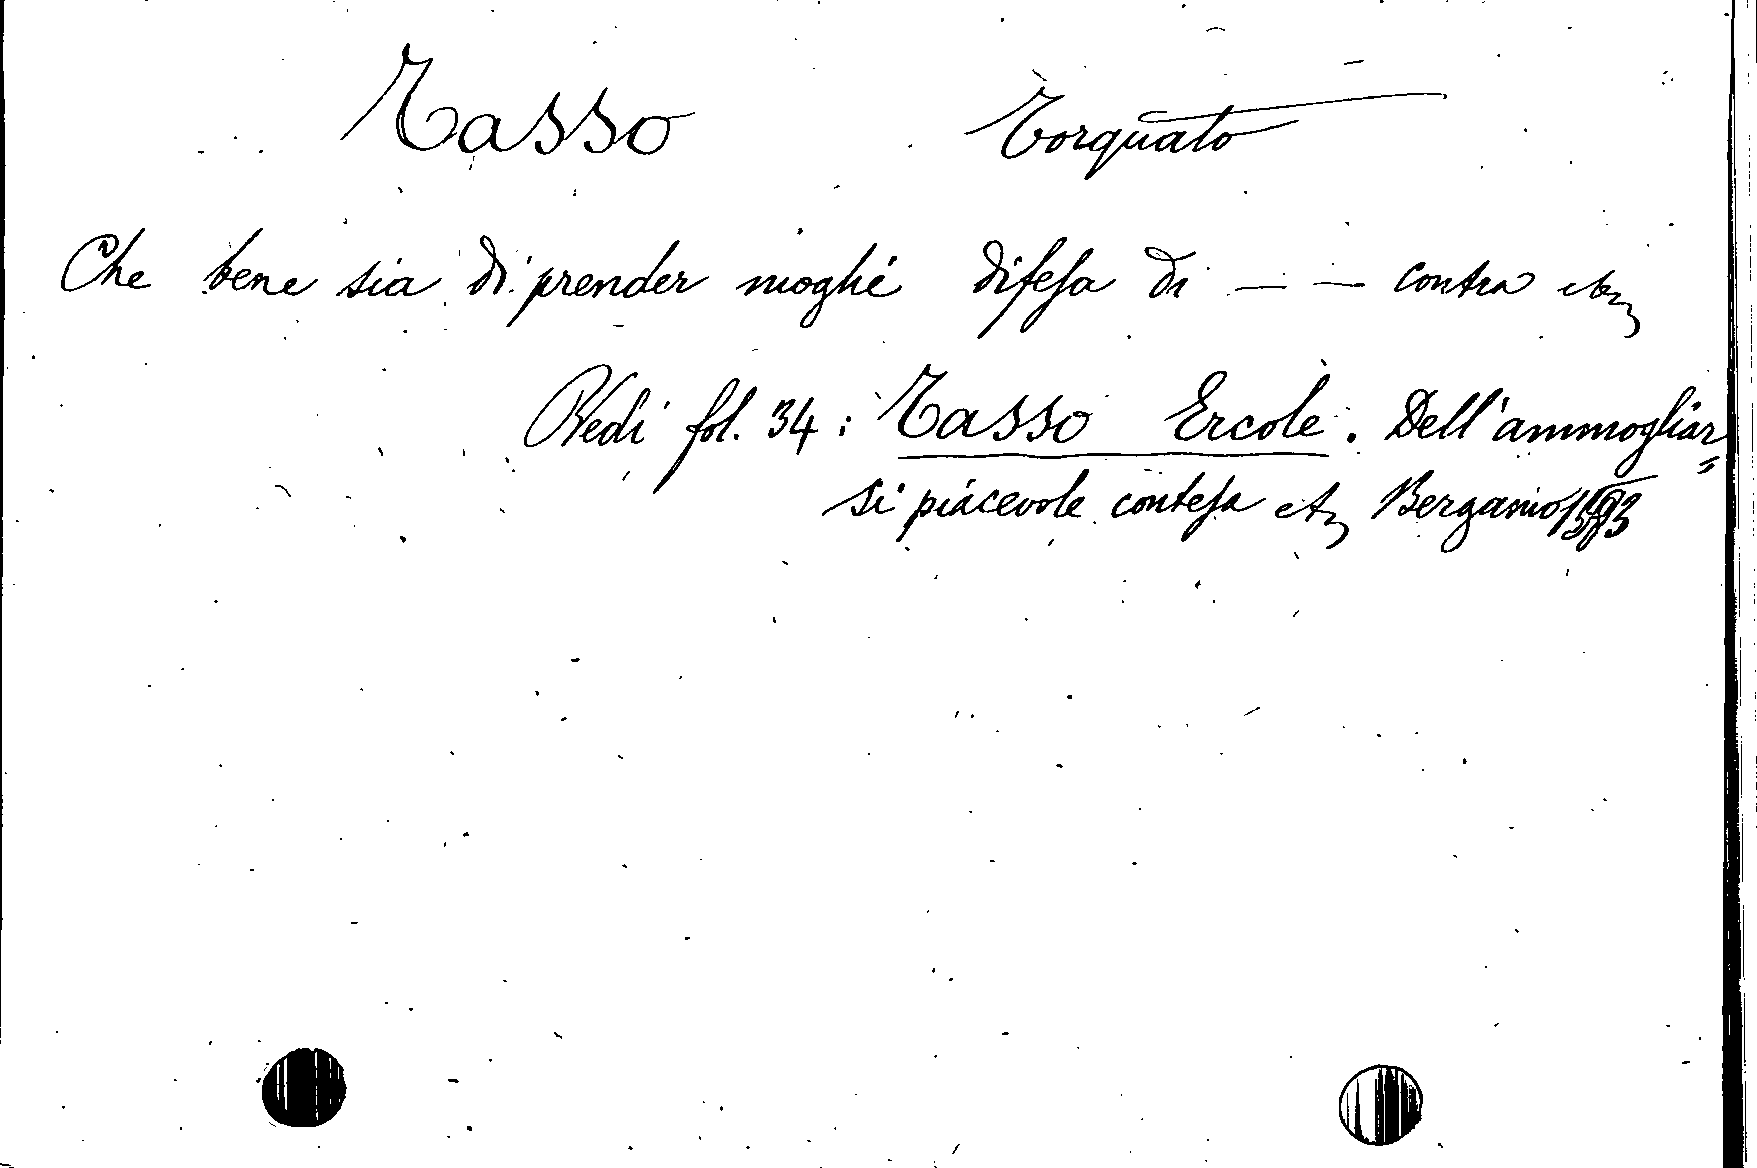 Tasso Torquato
Che bene sia di prender moglie difesa di — — contra etc
Vedi fol. 34: Tasso Ercole. Dell'ammogliar=
si piacevole contesa etc Bergamo 1593